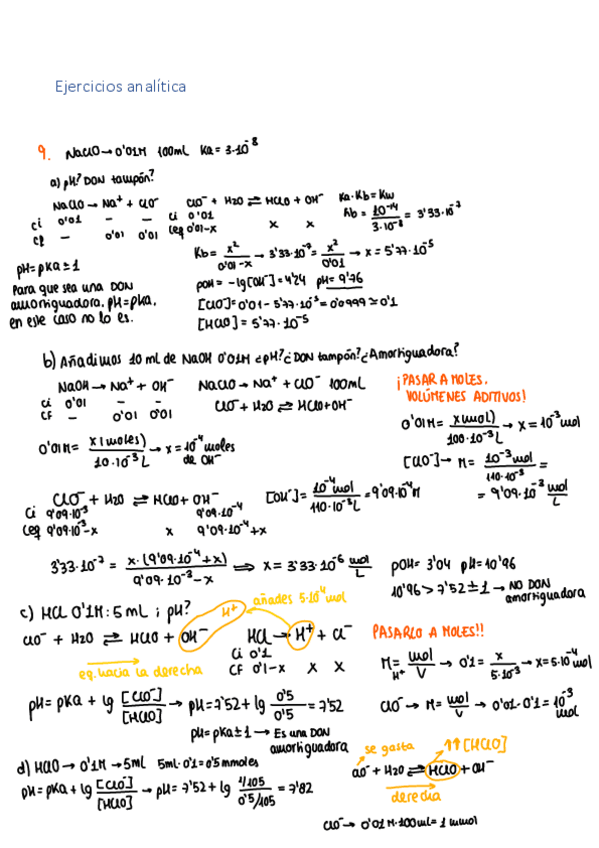 Ejercicios analítica
9. NaClO → 0'01M 100mL Ka = 3·10⁻⁸
a) pH? DON tampón?
NaClO → Na⁺ + ClO⁻ ClO⁻ + H2O ⇌ HClO + OH⁻ Ka·Kb = Kw
ci 0'01 — — ci 0'01 Kb = 10⁻¹⁴/3·10⁻⁸ = 3'33·10⁻⁷
cf — 0'01 0'01 Ceq 0'01-x x x
Kb = x²/0'01-x → 3'33·10⁻⁷ = x²/0'01 → x = 5'77·10⁻⁵
pH = pKa ± 1
Para que sea una DON
amortiguadora, pH=pKa,
en este caso no lo es.
pOH = -lg[OH⁻] = 4'24 pH = 9'76
[ClO⁻] = 0'01 - 5'77·10⁻⁵ = 0'0999 ≃ 0'1
[HClO] = 5'77·10⁻⁵
b) Añadimos 10 mL de NaOH 0'01M ¿pH? ¿DON tampón? ¿Amortiguadora?
NaOH → Na⁺ + OH⁻ NaClO → Na⁺ + ClO⁻ 100mL
Ci 0'01 — —
CF — 0'01 0'01
ClO⁻ + H2O ⇌ HClO + OH⁻
¡PASAR A MOLES,
VOLÚMENES ADITIVOS!
0'01M = x(mol)/100·10⁻³L → x = 10⁻³ mol
0'01M = x(moles)/10·10⁻³L → x = 10⁻⁴ moles
de OH⁻
[ClO⁻] → M = 10⁻³mol/110·10⁻³ =
= 9'09·10⁻³ mol/L
ClO⁻ + H2O ⇌ HClO + OH⁻ [OH⁻] = 10⁻⁴mol/110·10⁻³L = 9'09·10⁻⁴M
Ci 9'09·10⁻³ 9'09·10⁻⁴
Ceq 9'09·10⁻³-x x 9'09·10⁻⁴+x
3'33·10⁻⁷ = x·(9'09·10⁻⁴+x)/9'09·10⁻³-x ⟹ x = 3'33·10⁻⁶ mol/L pOH = 3'04 pH = 10'96
10'96 > 7'52 ± 1 → NO DON
amortiguadora
c) HCl 0'1M: 5 mL ¿pH? H⁺ añades 5·10⁻⁴ mol
ClO⁻ + H2O ⇌ HClO + OH⁻ HCl → H⁺ + Cl⁻
eq. hacia la derecha
Ci 0'1
CF 0'1-x x x
PASARLO A MOLES!!
M H⁺ = mol/V → 0'1 = x/5·10⁻³ → x = 5·10⁻⁴ mol
pH = pKa + lg [ClO⁻]/[HClO] → pH = 7'52 + lg 0'5/0'5 = 7'52
ClO⁻ → M = mol/V → 0'01·0'1 = 10⁻³ mol
pH = pKa ± 1 → Es una DON
amortiguadora
d) HClO → 0'1M → 5mL 5mL·0'1 = 0'5 mmoles
pH = pKa + lg [ClO⁻]/[HClO] → pH = 7'52 + lg 1/105/0'5/105 = 7'82
se gasta ↑↑ [HClO]
ClO⁻ + H2O ⇌ HClO + OH⁻
derecha
ClO⁻ → 0'01M·100mL = 1 mmol